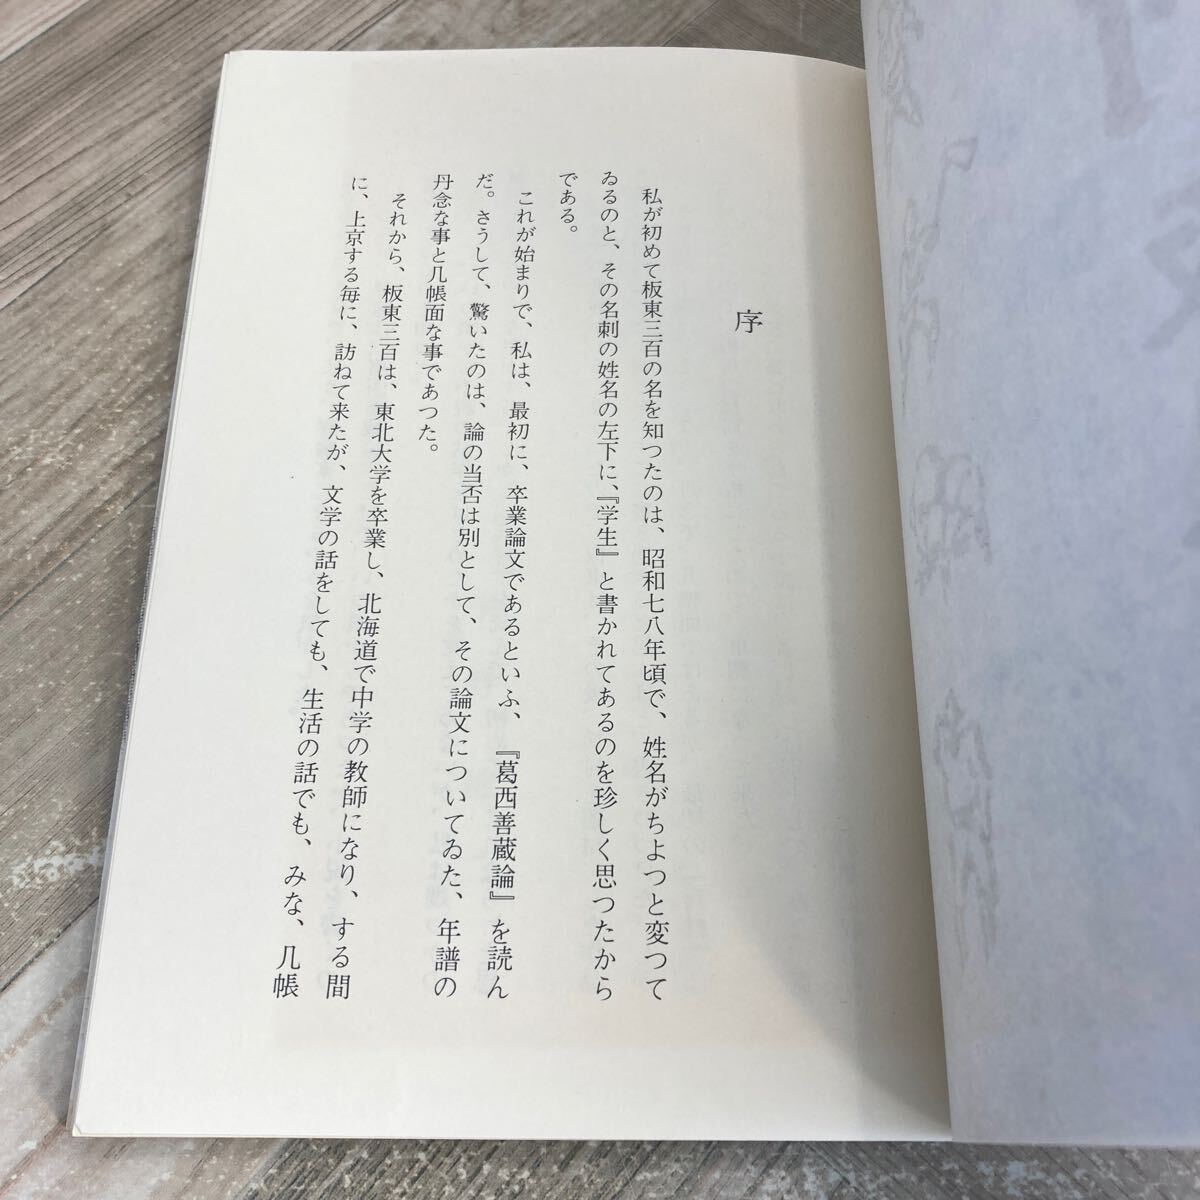 序
私が初めて板東三百の名を知つたのは、昭和七八年頃で、姓名がちよつと変つて
ゐるのと、その名刺の姓名の左下に、『学生』と書かれてあるのを珍しく思つたから
である。
これが始まりで、私は、最初に、卒業論文であるといふ、『葛西善蔵論』を読ん
だ。さうして、驚いたのは、論の当否は別として、その論文についてゐた、年譜の
丹念な事と几帳面な事であつた。
それから、板東三百は、東北大学を卒業し、北海道で中学の教師になり、する間
に、上京する毎に、訪ねて来たが、文学の話をしても、生活の話でも、みな、几帳